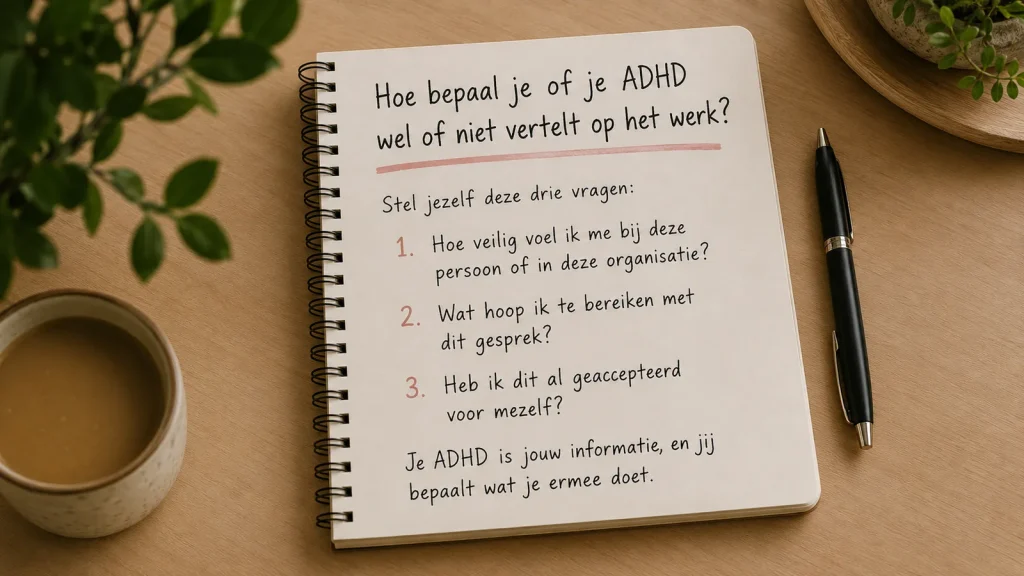 Hoe bepaal je of je ADHD
wel of niet vertelt op het werk?
Stel jezelf deze drie vragen:
1. Hoe veilig voel ik me bij deze
persoon of in deze organisatie?
2. Wat hoop ik te bereiken met
dit gesprek?
3. Heb ik dit al geaccepteerd
voor mezelf?
Je ADHD is jouw informatie, en jij
bepaalt wat je ermee doet.